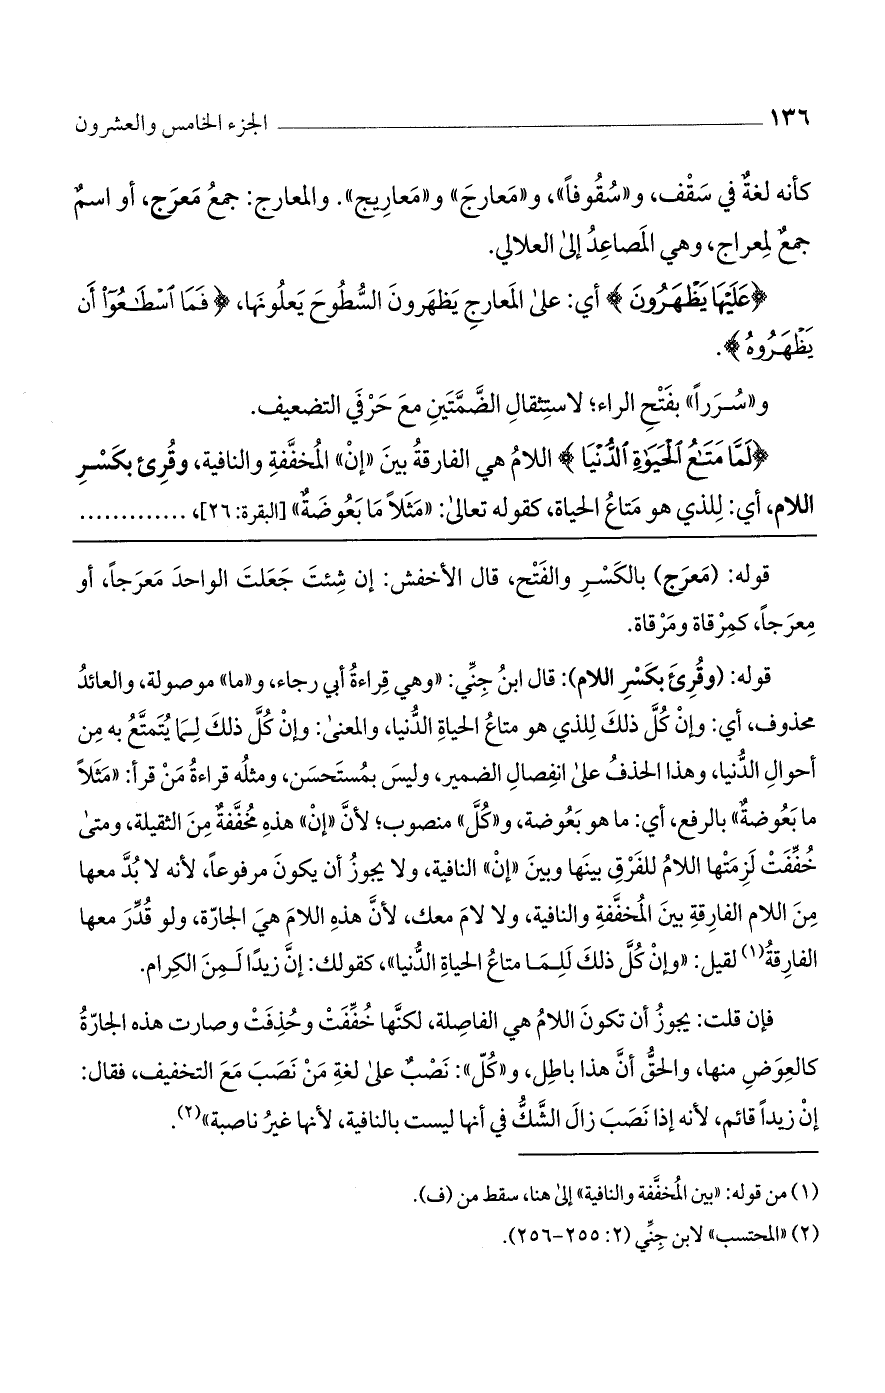 ١٣٦ الجزء الخامس والعشرون
كأنه لغةٌ في سَقْف، و«سُقُوفاً»، و«مَعارجَ» و«مَعاريج». والمعارج: جمعُ مَعرَج، أو اسمُ
جمعٌ لِمعراج، وهي المَصاعِدُ إلىٰ العلالي.
﴿عَلَيْهَا يَظْهَرُونَ﴾ أي: علىٰ المَعارجِ يَظهَرونَ السُّطوحَ يَعلُونَها، ﴿فَمَا ٱسْطَٰعُوٓا۟ أَن
يَظْهَرُوهُ﴾.
و«سُرَراً» بفَتْحِ الراء؛ لاستِثقالِ الضَّمَّتَينِ معَ حَرْفَي التضعيف.
﴿لَمَّا مَتَٰعُ ٱلْحَيَوٰةِ ٱلدُّنْيَا﴾ اللامُ هي الفارقةُ بينَ «إنْ» المُخفَّفةِ والنافية، وقُرِئ بكَسْرِ
اللام، أي: لِلذي هو مَتاعُ الحياة، كقوله تعالىٰ: «مَثَلاً مَا بَعُوضَةٌ» [البقرة: ٢٦]، .............
قوله: (مَعرَج) بالكَسْرِ والفَتْح، قال الأخفش: إن شِئتَ جَعَلتَ الواحدَ مَعرَجاً، أو
مِعرَجاً، كمِرْقاة ومَرْقاة.
قوله: (وقُرِئَ بكَسْرِ اللام): قال ابنُ جِنِّي: «وهي قِراءةُ أبي رجاء، و«ما» موصولة، والعائدُ
محذوف، أي: وإنْ كُلَّ ذلكَ لِلذي هو متاعُ الحياةِ الدُّنيا، والمعنىٰ: وإنْ كُلَّ ذلكَ لِمَا يُتَمتَّعُ به مِن
أحوالِ الدُّنيا، وهذا الحذفُ علىٰ انفِصالِ الضمير، وليسَ بمُستَحسَن، ومثلُه قراءةُ مَنْ قرأ: «مَثَلاً
ما بَعُوضةٌ» بالرفع، أي: ما هو بَعُوضة، و«كُلَّ» منصوب؛ لأنَّ «إنْ» هذه مُخفَّفةٌ مِنَ الثقيلة، ومتىٰ
خُفِّفَتْ لَزِمَتْها اللامُ للفَرْقِ بينَها وبينَ «إنْ» النافية، ولا يجوزُ أن يكونَ مرفوعاً، لأنه لا بُدَّ معها
مِنَ اللام الفارِقةِ بينَ المُخفَّفةِ والنافية، ولا لامَ معك، لأنَّ هذهِ اللامَ هيَ الجارّة، ولو قُدِّرَ معها
الفارِقةُ(١) لقيل: «وإنْ كُلَّ ذلكَ لَلِمَا متاعُ الحياةِ الدُّنيا»، كقولك: إنَّ زيدًا لَمِنَ الكِرام.
فإن قلت: يجوزُ أن تكونَ اللامُ هي الفاصِلة، لكنَّها خُفِّفَتْ وحُذِفَتْ وصارت هذه الجارّةُ
كالعِوَضِ منها، والحقُّ أنَّ هذا باطِل، و«كُلّ»: نَصْبٌ علىٰ لغةِ مَنْ نَصَبَ مَعَ التخفيف، فقال:
إنْ زيداً قائم، لأنه إذا نَصَبَ زالَ الشَّكُّ في أنها ليست بالنافية، لأنها غيرُ ناصبة»(٢).
(١) من قوله: «بين المُخفَّفة والنافية» إلىٰ هنا، سقط من (ف).
(٢) «المحتسب» لابن جِنِّي (٢: ٢٥٥-٢٥٦).